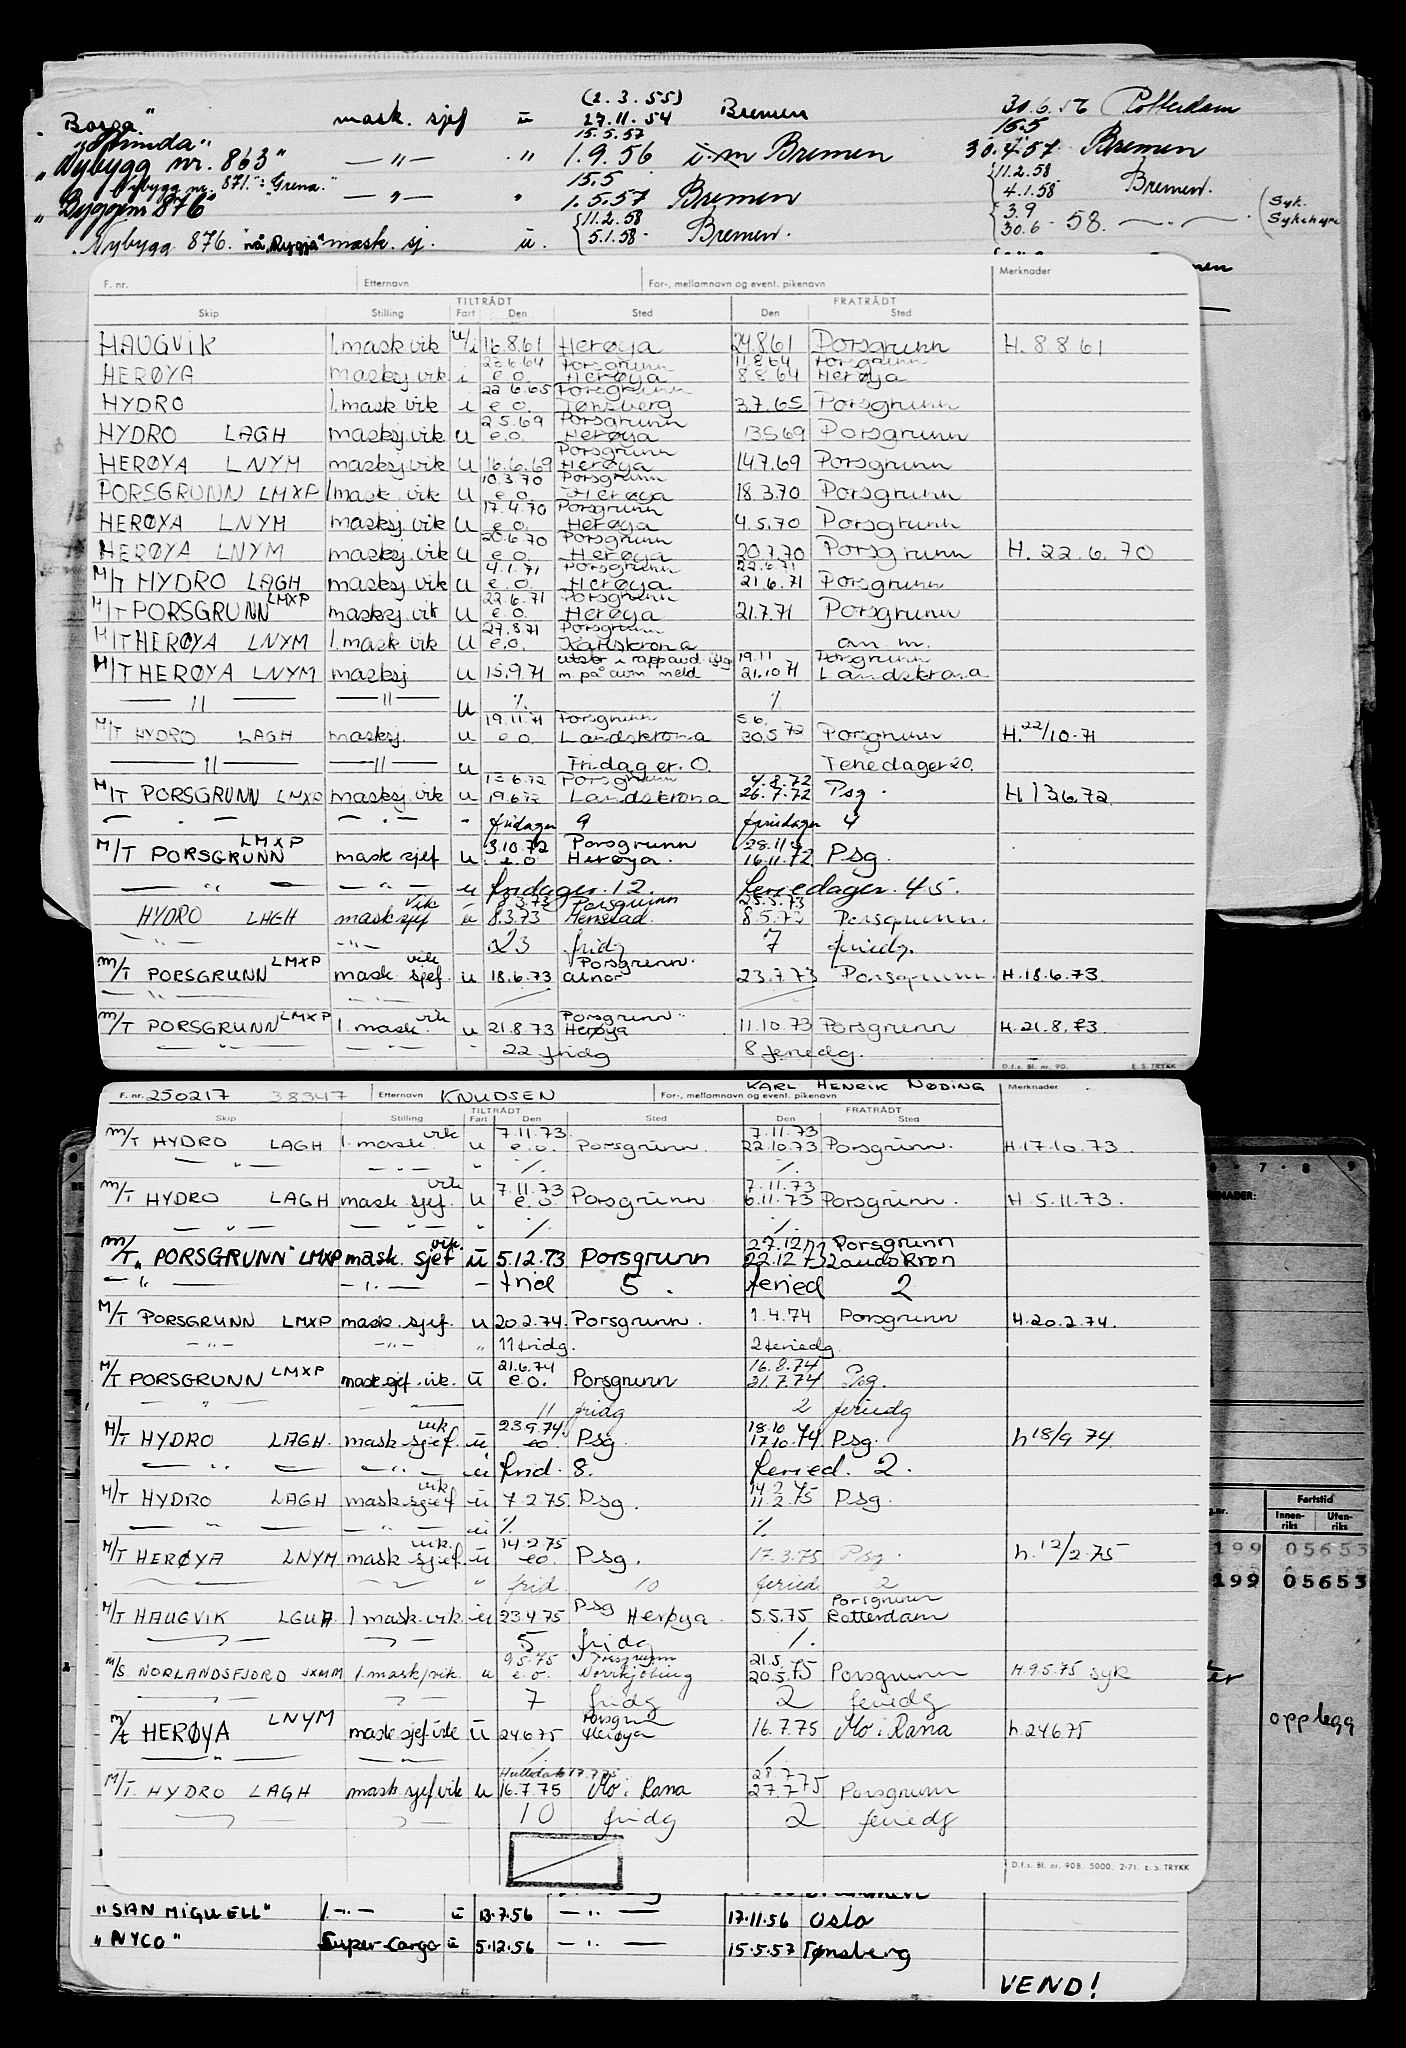 "Borga" mask. sjef u (2.3.55) 27.11.54 Bremen 30.6.56 Rotterdam
15.5.57 15.5
"Nybygg nr. 863" — " — " 1.9.56 Bremen 30.4.57 Bremen
Nybygg nr. 871": "Grena." 15.5 11.2.58
"Byggenr 876" — " — " 1.5.57 Bremen 4.1.58 Bremen.
Nybygg 876. nå "Rygja" mask. sj. u. {11.2.58 5.1.58- Bremen. {3.9 30.6 - 58. — " — (Syk. Sykehyre
F. nr. Etternavn For-, mellomnavn og event. pikenavn Merknader
TILTRÅDT FRATRÅDT
Skip Stilling Fart Den Sted Den Sted
HAUGVIK 1.mask vik u/i 16.8.61 Herøya 24.8.61 Porsgrunn H. 8 8 61
23.6.64 Porsgrunn 11.8.64 Porsgrunn
HERØYA masksj. vik i e.o. Herøya 8.8.64 Herøya
22.6.65 Porsgrunn
HYDRO 1.mask vik i e.o. Tønsberg 3.7.65 Porsgrunn
2.5.69 Porsgrunn
HYDRO LAGH masksj. vik u e.o. Herøya 13.5.69 Porsgrunn
Porsgrunn
HERØYA LNYM masksj. vik u 16.6.69 Herøya 14.7.69 Porsgrunn
10.3.70 Porsgrunn
PORSGRUNN LMXP 1mask vik u e.o. Herøya 18.3.70 Porsgrunn
17.4.70 Porsgrunn
HERØYA LNYM masksj. vik u e.o. Herøya 4.5.70 Porsgrunn
20.6.70 Porsgrunn
HERØYA LNYM masksj. vik u e.o. Herøya 20.7.70 Porsgrunn H. 22.6.70
4.1.71 Porsgrunn 22.6.71
M/T HYDRO LAGH masksj. vik u e.o. Herøya 21.6.71 Porsgrunn
22.6.71 Porsgrunn
M/T PORSGRUNN LMXP masksj. vik u e.o. Herøya 21.7.71 Porsgrunn
27.8.71 Porsgrunn
M/T HERØYA LNYM 1.mask vik u e.o. Karlskrona an. m.
19.11 Porsgrunn
M/T HERØYA LNYM masksj u 15.9.71 m på avm meld 21.10 71 Landskrona
— " — — " — u % %
19.11.71 Porsgrunn 5.6.
M/T HYDRO LAGH masksj. u e.o. Landskrona 30.5.72 Porsgrunn H. 22/10-71
— " — — " — u Fridager. 0. Feriedager 20.
13.6.72 Porsgrunn 4.8.72
M/T PORSGRUNN LMXP masksj. vik u 19.6.72 Landskrona 26.7.72 Psg. H 13.6.72
— " — — " — " fridager 9 feriedager 4
LMXP 3.10.72 Porsgrunn 28.11
M/T PORSGRUNN mask sjef u e.o Herøya. 16.11.72 Psg.
— " — — " — u fridager. 12. feriedager. 45.
vik 8.3.73 Porsgrunn 25.5.73
HYDRO LAGH mask sjef u 8.3.73 8.5.73 Porsgrunn.
— " — — " — 23 fridg 7 feriedg.
LMXP vik Porsgrunn.
M/T PORSGRUNN mask. sjef. u 18.6.73 23.7.73 Porsgrunn H.18.6.73.
— " — — " —
LMXP vik Porsgrunn
M/T PORSGRUNN 1. mask. u 21.8.73 Herøya 11.10.73 Porsgrunn H.21.8.73.
— " — — " — 22 fridg 8 feriedg.
D.f.s. Bl. nr. 90. E. S. TRYKK
F. nr. 250217 38347 Etternavn KNUDSEN For-, mellomnavn og event. pikenavn KARL HENRIK NØDING Merknader
TILTRÅDT FRATRÅDT
Skip Stilling Fart Den Sted Den Sted
vik 7.11.73. 7.11.73
M/T HYDRO LAGH 1. mask. u e.o. Porsgrunn. 22.10.73 Porsgrunn. H.17.10.73.
— " — — " — " % %
vik 7.11.73 7.11.73
M/T HYDRO LAGH mask. sjef. u e.o. Porsgrunn. 6.11.73 Porsgrunn. H. 5.11.73.
— " — — " — " % %
vik. 27.12.73 Porsgrunn
M/T "PORSGRUNN" LMXP mask. sjef u 5.12.73 Porsgrunn 22.12.73 Landskron
— " — — " — — frid 5. feried 2
M/T PORSGRUNN LMXP mask. sjef. u 20.2.74. Porsgrunn. 1.4.74 Porsgrunn H.20.2.74.
— " — — " — " 11 fridg. 2 feriedg.
21.6.74 16.8.74
M/T PORSGRUNN LMXP mask sjef. vik. u e.o. Porsgrunn 31.7.74 Psg.
— " — 11 fridg 2 feriedg
vik 23.9.74. 18.10
M/T HYDRO LAGH. mask sjef. u eo. Psg. 17.10.74 Psg. h 18/9 74
— " — — " — u frid. 8. feried. 2.
vik 14.2
M/T HYDRO LAGH mask sjef u 7.2.75. Psg. 11.2.75 Psg.
— " — — " — u % %
vik. 14.2.75
M/T HERØYA LNYM mask sjef. u eo. Psg. 17.3.75 Psg. h. 12/2.75
— " frid 10 feried 2
Porsgrunn
M/T HAUGVIK LGUA 1 mask. vik. u 23.4.75 Psg Herøya. 5.5.75 Rotterdam
— " — — " — 5 fridg %
9.5.75 Porsgrunn 21.5.
M/S NORLANDSFJORD JXMM 1. mask/vik. u e.o. Norrkjöbing 20.5.75 Porsgrunn H.9.5.75 syk
— " — — " — 7 fridg 2 feriedg
LNYM Porsgrunn
M/t HERØYA mask sjef vik u 24675 Herøya 16.7.75 Mo i Rana h. 24675
— " — — " — % %
17.7.75 28.7
M/T. HYDRO LAGH mask sjef vik u 16.7.75 Mo i Rana 27.7.75 Porsgrunn
— " — — " — 10 fridg 2 feriedg
D.f.s. Bl. nr. 90B. 5000. 2-71. E. S. TRYKK
"SAN MIGUELL" 1. -"- u 13.7.56 — " — 17.11.56 Oslo
"NYCO" Super-Cargo u 5.12.56 — " — 15.5.57 Tønsberg
VEND!
6 • 7 • 8 9
Fartstid
Innen-riks Uten-riks
199 05653
199 05653
opplegg